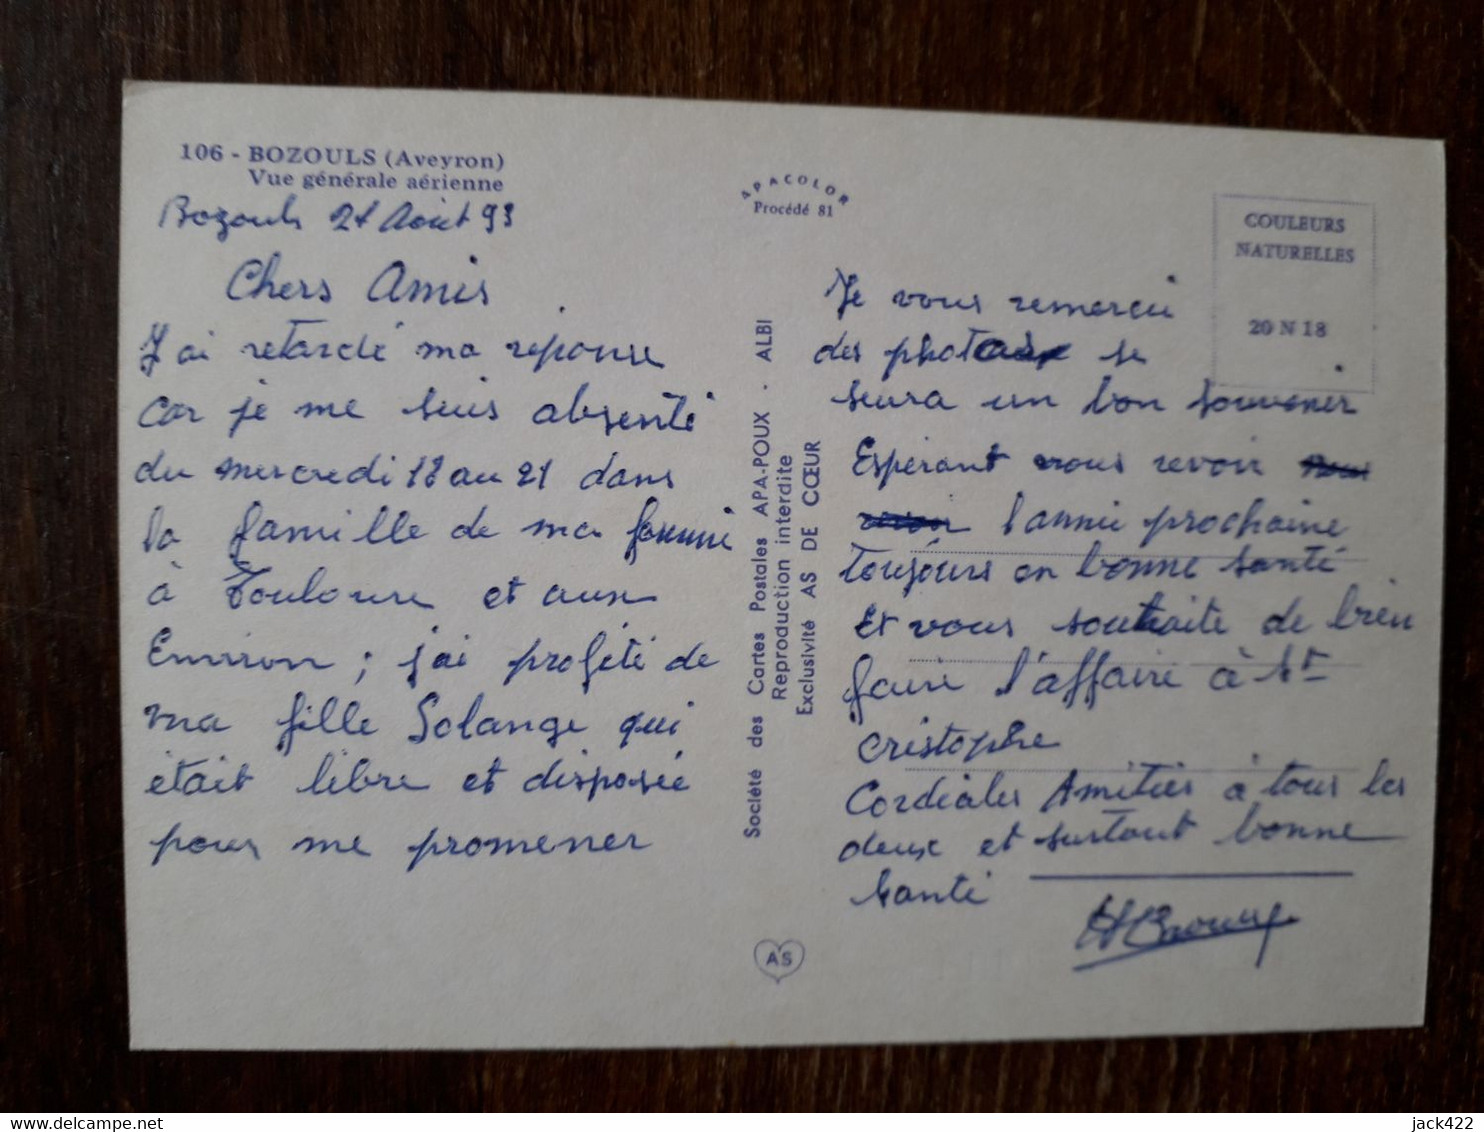 106 - BOZOULS (Aveyron)
Vue générale aérienne
Bozouls 21 Août 93
Chers Amis
J'ai retardé ma réponse
car je me suis absenté
du mercredi 18 au 21 dans
la famille de ma femme
à Toulouse et aux
Environ ; j'ai profité de
ma fille Solange qui
était libre et disposée
pour me promener
APACOLOR
Procédé 81
Société des Cartes Postales APA-POUX - ALBI
Reproduction interdite
Exclusivité AS DE CŒUR
AS
COULEURS
NATURELLES
20 N 18
Je vous remercie
des photos se
seura un bon souvenir
Espérant vous revoir
l'année prochaine
Toujours en bonne santé
Et vous souhaite de bien
faire l'affaire à St
Cristophe
Cordiales Amitiés à tous les
deux et surtout bonne
santé
delcampe.net
jack422